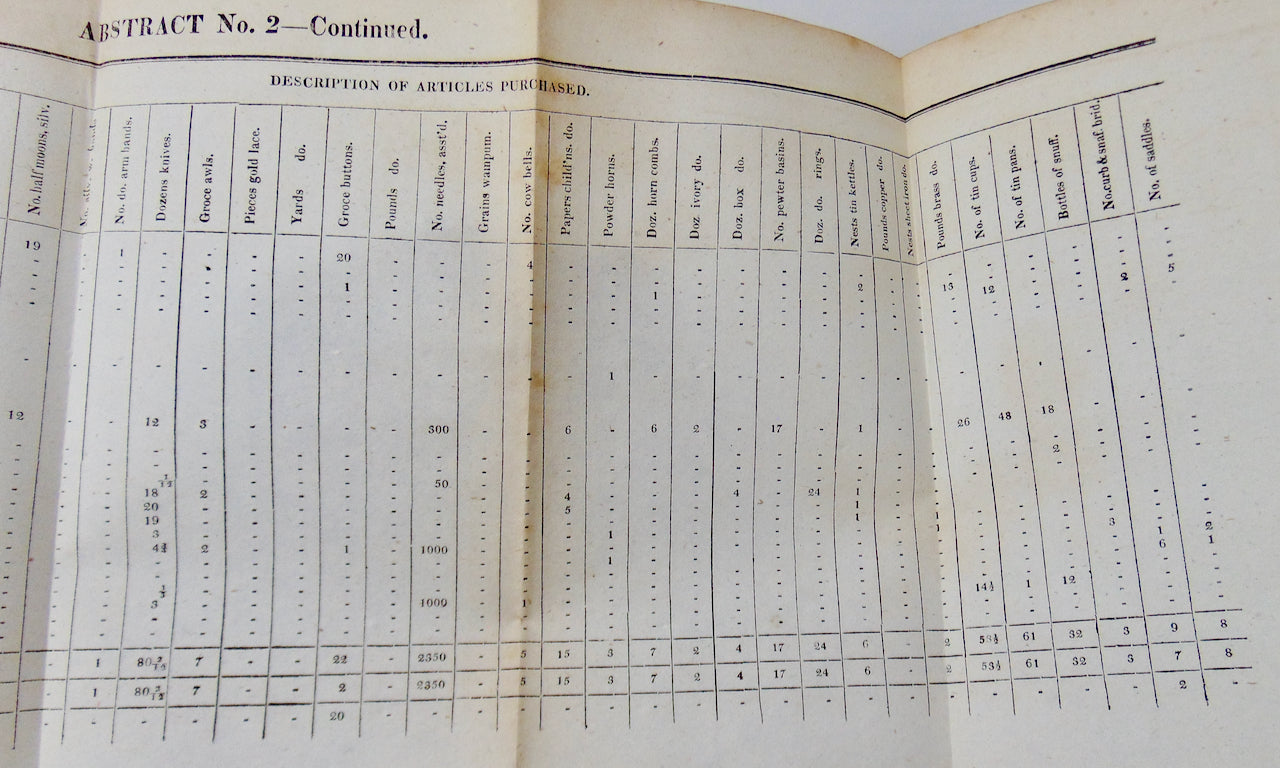 ABSTRACT No. 2—Continued.
DESCRIPTION OF ARTICLES PURCHASED.
No. half moons, silv.
No. do. arm bands.
Dozens knives.
Groce awls.
Pieces gold lace.
Yards do.
Groce buttons.
Pounds do.
No. needles, asst'd.
Grains wampum.
No. cow bells.
Papers child'ns. do.
Powder horns.
Doz. horn combs.
Doz ivory do.
Doz. box do.
No. pewter basins.
Doz. do. rings.
Nests tin kettles.
Pounds copper do.
Nests sheet iron do.
Pounds brass do.
No. of tin cups.
No. of tin pans.
Bottles of snuff.
No. curb & snaf. brid.
No. of saddles.
19 1 20 4 2 13 12 2 5
1 1
- - - - - - - - - - - 1 - - - - - - - - - - - - -
12 - - 12 3 - - - - 300 - - 6 - 6 2 - 17 - 1 - - 26 48 18 - - -
50 2
1/12
18 2 4 4 24 1
20 5 1
19 1 1
3 1 3 1 2
4¾ 2 1 1000 6 1
1
14½ 1 12
3 1000 1
- 1 80 7/12 7 - - 22 - 2350 - 5 15 3 7 2 4 17 24 6 - 2 53½ 61 32 3 9 8
- 1 80 7/12 7 - - 2 - 2350 - 5 15 3 7 2 4 17 24 6 - 2 53½ 61 32 3 7 8
- - - - - - 20 - - - - - - - - - - - - - - - - - - - 2 -